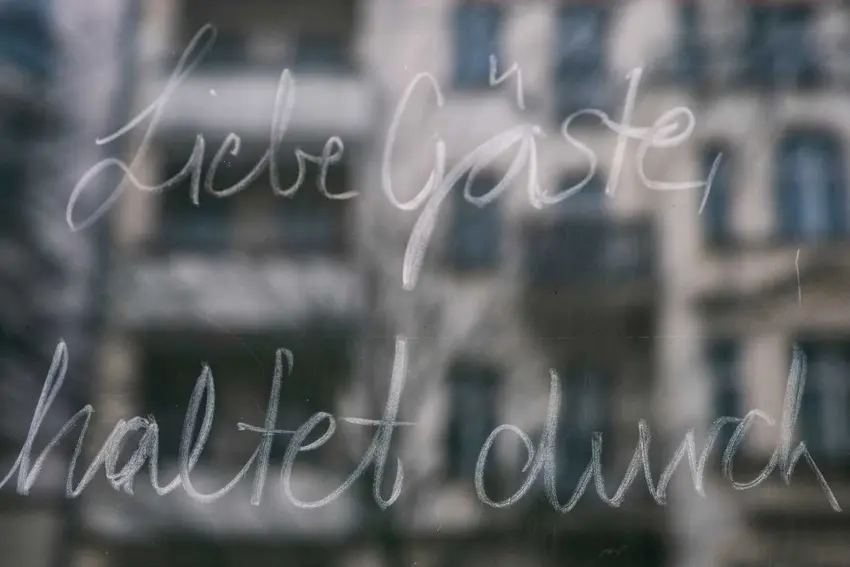 Liebe Gäste,
haltet durch